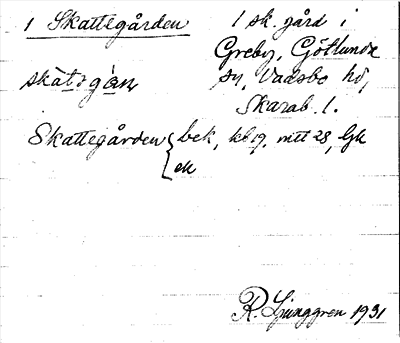 1 Skattegården
1 sk. gård i
Greby, Götlunda
skàtəgàn
sn, Vadsbo hd,
Skarab. l.
Skattegården { bek, kb 19, mtt 28, Gk
ek
R. Ljunggren 1931